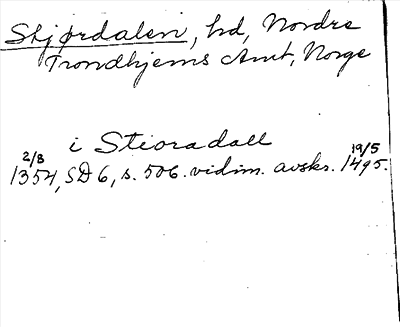 Stjørdalen, hd, Nordre
Trondhjems Amt, Norge
i Stioradall
2/8 1354, SD 6, s. 506. vidim. avskr. 19/5 1495.